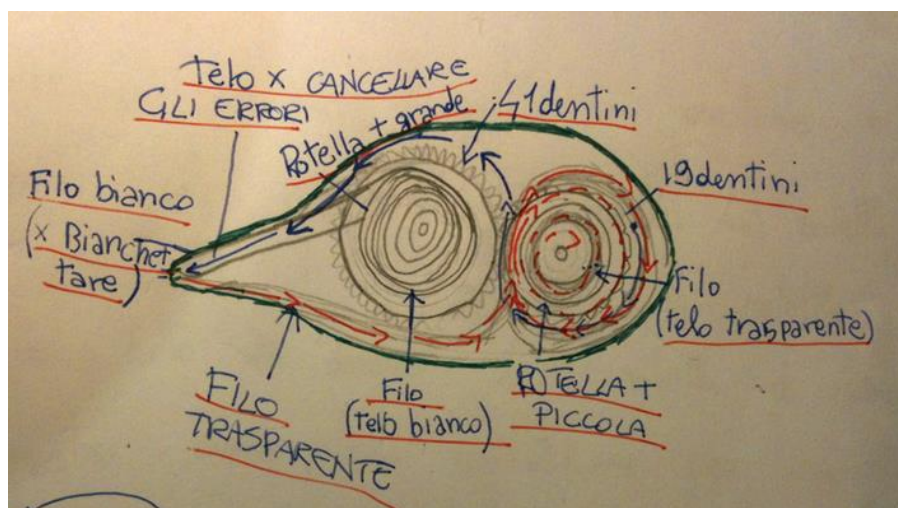 Telo x CANCELLARE
GLI ERRORI
Rotella + grande
41 dentini
19 dentini
Filo bianco
(x Bianchet
tare)
Filo
(telo trasparente)
FILO
TRASPARENTE
Filo
(telo bianco)
ROTELLA +
PICCOLA